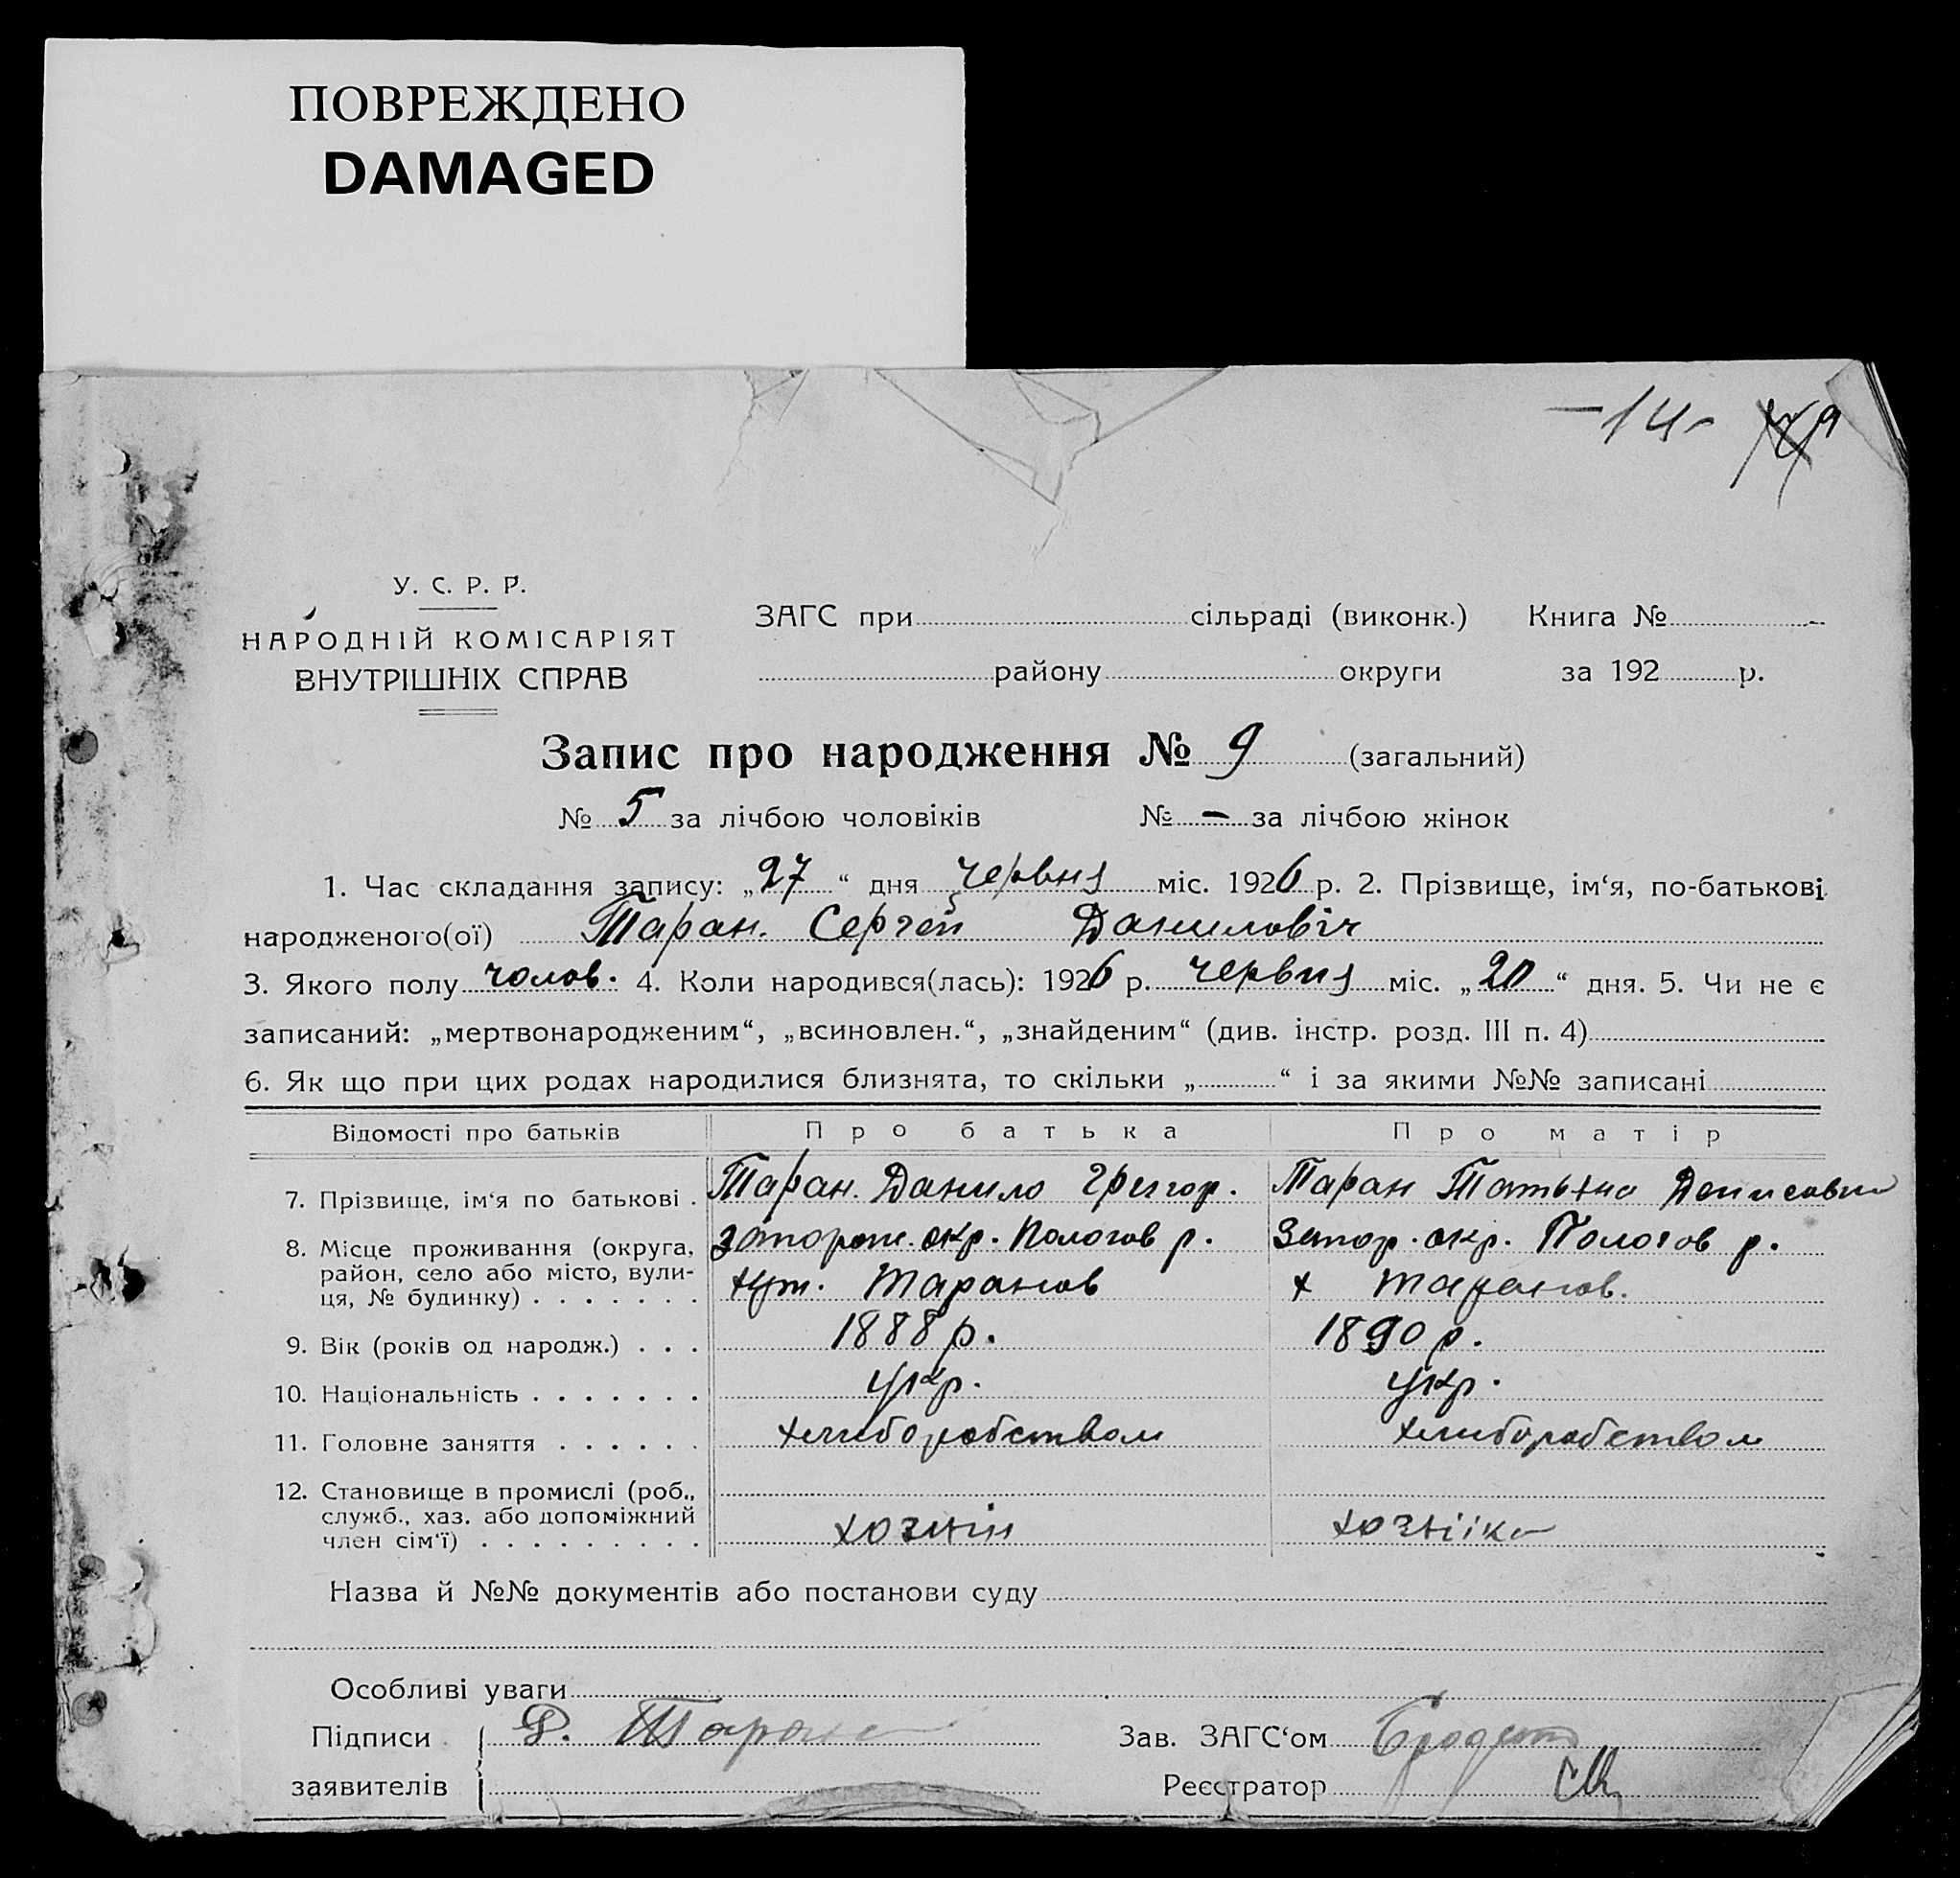 ПОВРЕЖДЕНО
DAMAGED
-14-
У. С. Р. Р.
НАРОДНІЙ КОМІСАРІЯТ
ВНУТРІШНІХ СПРАВ
ЗАГС при сільраді (виконк.) Книга №
району округи за 192 р.
Запис про народження № 9 (загальний)
№ 5 за лічбою чоловіків № - за лічбою жінок
1. Час складання запису: „27“ дня червня міс. 1926 р. 2. Прізвище, ім‘я, по-батькові
народженого(ої) Таран. Сергей Даниловіч
3. Якого полу чолов. 4. Коли народився(лась): 1926 р. червня міс. „20“ дня. 5. Чи не є
записаний: „мертвонародженим“, „всиновлен.“, „знайденим“ (див. інстр. розд. III п. 4)
6. Як що при цих родах народилися близнята, то скільки „ “ і за якими №№ записані
Відомості про батьків Про батька Про матір
7. Прізвище, ім‘я по батькові . Таран. Данило Григор. Таран Татьяна Денисовна
8. Місце проживання (округа, запорож. окр. Пологов р. Запор. окр. Пологов р.
район, село або місто, вули-
ця, № будинку) . . . . . . . хут. Таранов х Таранов.
9. Вік (років од народж.) . . . 1888 р. 1890 р.
10. Національність . . . . . . . укр. укр.
11. Головне заняття . . . . . . хлиборобством хлиборобством
12. Становище в промислі (роб.,
служб., хаз. або допоміжний
член сім‘ї) . . . . . . . . . хозяін хозяіка
Назва й №№ документів або постанови суду
Особливі уваги
Підписи Д. Таран Зав. ЗАГС‘ом
заявителів Реєстратор